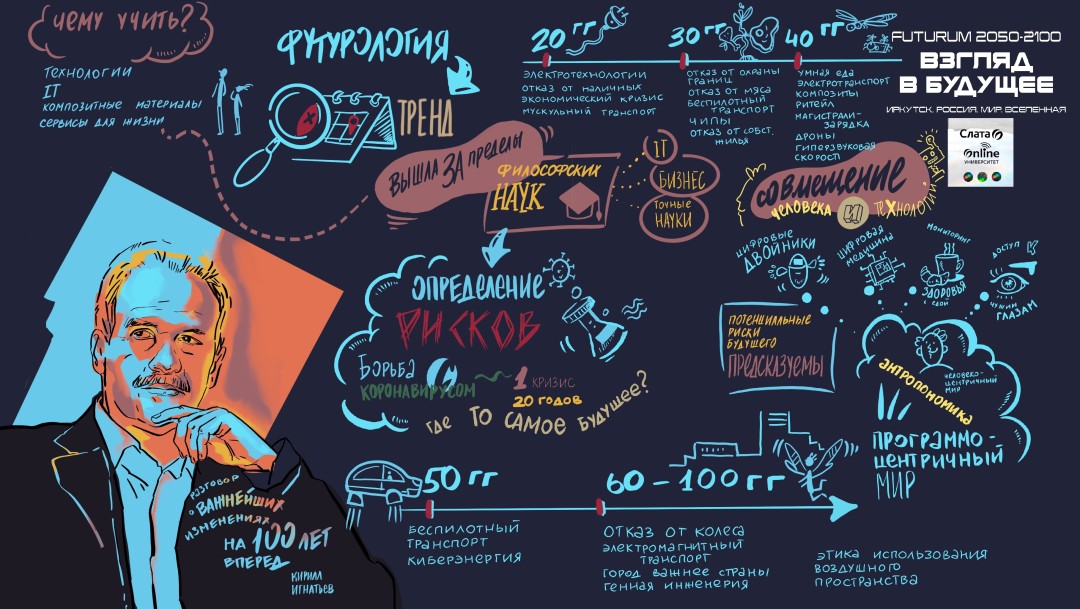 ЧЕМУ УЧИТЬ?
ТЕХНОЛОГИИ
IT
КОМПОЗИТНЫЕ МАТЕРИАЛЫ
СЕРВИСЫ ДЛЯ ЖИЗНИ
ФУТУРОЛОГИЯ
ТРЕНД
20 ГГ
ЭЛЕКТРОТЕХНОЛОГИИ
ОТКАЗ ОТ НАЛИЧНЫХ
ЭКОНОМИЧЕСКИЙ КРИЗИС
МУСКУЛЬНЫЙ ТРАНСПОРТ
30 ГГ
ОТКАЗ ОТ ОХРАНЫ
ГРАНИЦ
ОТКАЗ ОТ МЯСА
БЕСПИЛОТНЫЙ
ТРАНСПОРТ
ЧИПЫ
ОТКАЗ ОТ СОБСТ.
ЖИЛЬЯ
40 ГГ
УМНАЯ ЕДА
ЭЛЕКТРОТРАНСПОРТ
КОМПОЗИТЫ
РИТЕЙЛ
МАГИСТРАЛИ-
ЗАРЯДКА
ДРОНЫ
ГИПЕРЗВУКОВАЯ
СКОРОСТЬ
FUTURUM 2050-2100
ВЗГЛЯД
В БУДУЩЕЕ
ИРКУТСК. РОССИЯ. МИР. ВСЕЛЕННАЯ
Слата
Online
УНИВЕРСИТЕТ
ВЫШЛА ЗА ПРЕДЕЛЫ
ФИЛОСОФСКИХ
НАУК
IT
БИЗНЕС
ТОЧНЫЕ
НАУКИ
СОВМЕЩЕНИЕ
ЧЕЛОВЕКА И ТЕХНОЛО
ЦИФРОВЫЕ
ДВОЙНИКИ
ЦИФРОВАЯ
МЕДИЦИНА
МОНИТОРИНГ
ЗДОРОВЬЯ
ДОСТУП К
ЧУЖИМ
ГЛАЗАМ
ОПРЕДЕЛЕНИЕ
РИСКОВ
БОРЬБА С
КОРОНАВИРУСОМ
1 КРИЗИС
20 ГОДОВ
ГДЕ ТО САМОЕ БУДУЩЕЕ?
ПОТЕНЦИАЛЬНЫЕ
РИСКИ
БУДУЩЕГО
ПРЕДСКАЗУЕМЫ
ЧЕЛОВЕКО-
ЦЕНТРИЧНЫЙ
МИР
АНТРОПОНОМИКА
ПРОГРАММО-
ЦЕНТРИЧНЫЙ
МИР
РАЗГОВОР
О ВАЖНЕЙШИХ
ИЗМЕНЕНИЯХ
НА 100 ЛЕТ
ВПЕРЕД
КИРИЛЛ
ИГНАТЬЕВ
50 ГГ
БЕСПИЛОТНЫЙ
ТРАНСПОРТ
КИБЕРЭНЕРГИЯ
60 - 100 ГГ
ОТКАЗ ОТ КОЛЕСА
ЭЛЕКТРОМАГНИТНЫЙ
ТРАНСПОРТ
ГОРОД ВАЖНЕЕ СТРАНЫ
ГЕННАЯ ИНЖЕНЕРИЯ
ЭТИКА ИСПОЛЬЗОВАНИЯ
ВОЗДУШНОГО
ПРОСТРАНСТВА